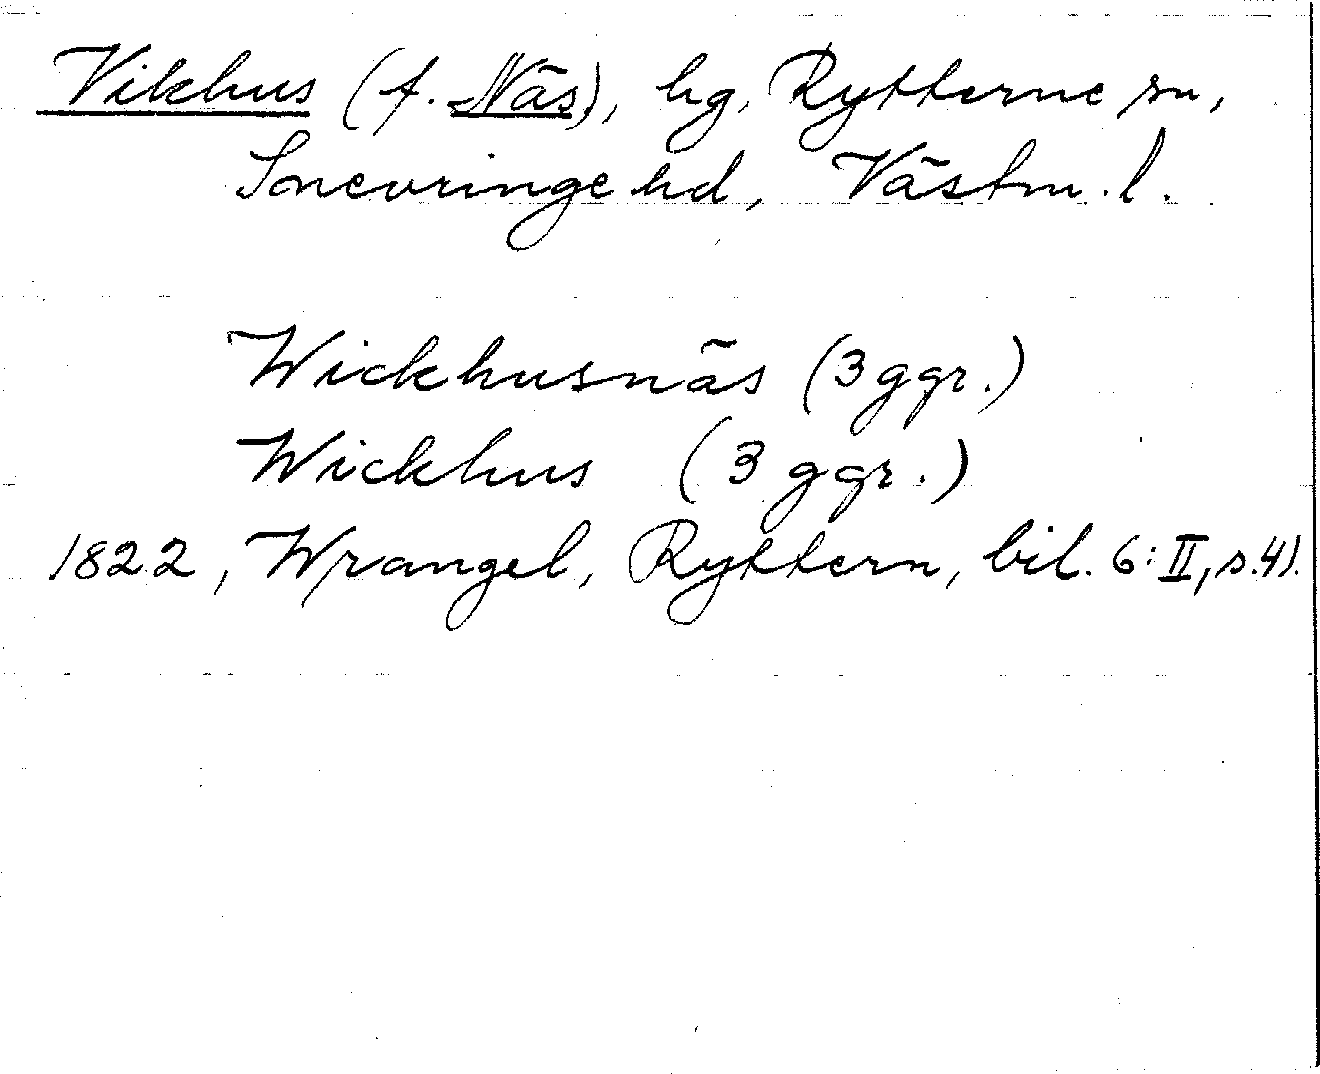 Vikhus (f. Näs), hg, Rytterne sn,
Snevringe hd, Västm. l.
Wickhusnäs (3 ggr.)
Wickhus (3 ggr.)
1822, Wrangel, Ryttern, bil. 6: II, s. 41.